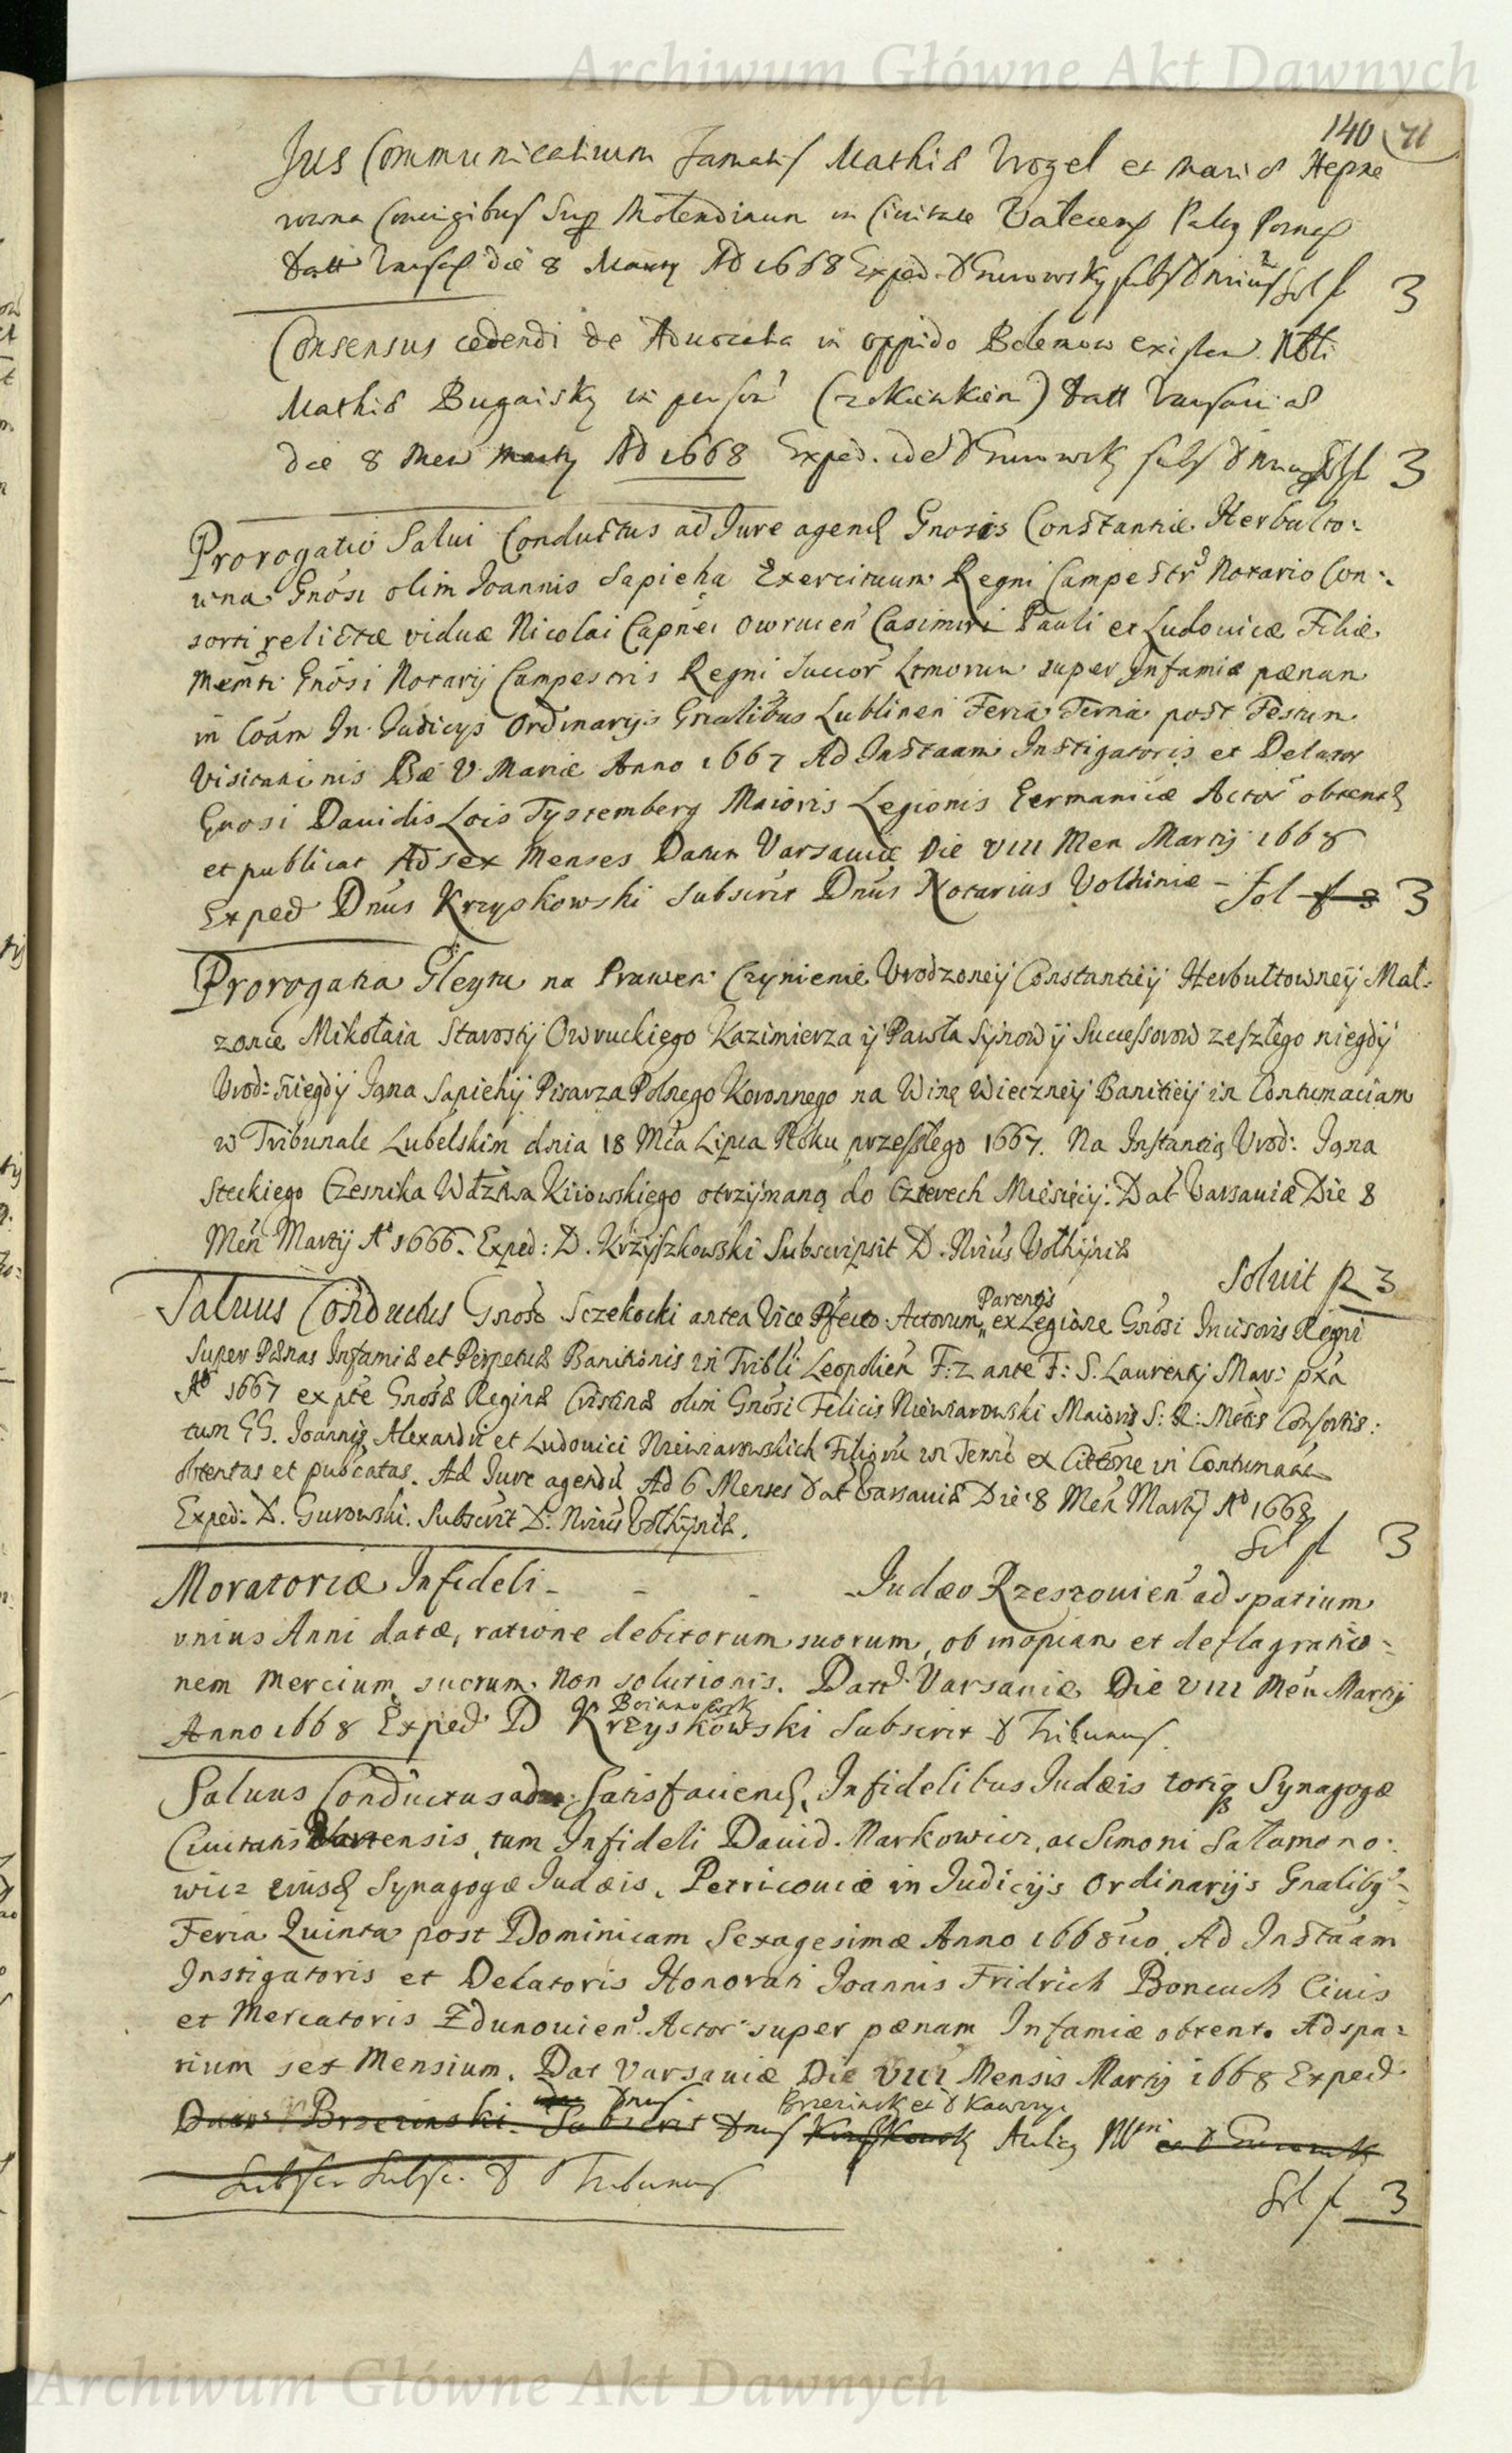 Archiwum Główne Akt Dawnych
140 71
Jus Communicativum famatis Mathiæ Vogel et Mariæ Hepne
rowna Coniugibus Super Molendinum in Civitate Valecens Paleg Pomes
Datt Varsaviæ die 8 Martij AD 1668 Exped. D Gurowsky subs D Nrius Sol f 3
Consensus cedendi de Advocatia in oppido Bolemow existen. Nbli
Mathiæ Bugaisky in person Datt Varsaviæ
die 8 Men Martij AD 1668 Exped. D Gurowsky subs D Nrius Sol f 3
Prorogatio Salui Conductus ad Jure agend Gnosis Constantiæ Herbulto:
wna Gnosi olim Joannis Sapieha Exercituum Regni Campestr Notario Con:
sorti relictæ viduæ Nicolai Capnei Owrucen Casimiri Pauli et Ludouicæ Filiæ
memti Gnosi Notarij Campestris Regni Succor Ltmorum super Infamiæ pænam
in Coam In Judicys Ordinarijs Gnalibus Lublinen Feria Terna post Festum
Visitationis Bæ V Mariæ Anno 1667 Ad Instaam Instigatoris et Delator
Gnosi Dauidis Lois Tystemberg Maioris Legionis Germanicæ Actor obtent
et publicat Ad sex Menses Datum Varsauiæ Die VIII Men Martij 1668
Exped Dnus Krzyskowski Subscrit Dnus Notarius Volhiniæ - Sol f 3 3
Prorogatia Gleytu na Prawem Czynienie Vrodzoneij Constantieij Herbultowneij Mal:
zonce Mikołaia Starostij Owruckiego Kazimierza ij Pawła Sijnow ij Successorow zeszłego niegdij
Vrod: niegdij Jana Sapiehij Pisarza Polnego Koronnego na Winę Wieczneij Banitieij in Contumaciam
w Tribunale Lubelskim dnia 18 Mca Lipca Roku przeszłego 1667. Na Instantią Vrod: Jana
Steckiego Czesnika Wdztwa Kiiowskiego otrzijmaną do Czterech Miesięcij. Dat Varsauiæ Die 8
Men Martij A° 1666. Exped: D. Krzijszkowski Subscripsit D. Nrius Volhijniæ
Soluit fl 3
Saluus Conductus Gnoso Sczekocki antea Vice Pfecto Actorum Parentis ex Legione Gnosi Incisoris Regni
Super Pænas Infamiæ et Perpetuæ Banitionis in Tribli Leopolien F: 2 ante F: S. Laurentij Mar: pxa
A° 1667 ex pte Gnosæ Reginæ Cristinæ olim Gnosi Felicis Niewiarowski Maioris S: R: Mtis Consortis:
tum GG. Joannis Alexandri et Ludouici Niewiarowskich Filiorū in Termo ex Cittone in Contumaam
obtentas et publcatas. Ad Jure agendū Ad 6 Menses Dat Varsauiæ Die 8 Men Martij A° 1668
Exped: D. Gurowski. Subscrit D: Nrius Volhijniæ.
Sol fl 3
Moratoriæ Infideli - - - Judæo Rzeszouien ad spatium
vnius Anni datæ, ratione debitorum suorum, ob inopiam et deflagratio-
nem Mercium suorum non solutionis. Datt Varsauiæ Die VIII Men Martij
Anno 1668 Exped D Krzyskowski Boianowsk Subscrit D Tribunus.
Saluus Conductus ad Satisfaciend, Infidelibus Judæis totiq Synagogæ
Ciuitatis Wartensis, tum Infideli Dauid Markowicz, ac Simoni Salamono:
wicz eiusd Synagogæ Judæis, Petricouiæ in Judicijs Ordinarijs Gnalibg
Feria Quinta post Dominicam Sexagesimæ Anno 1668uo. Ad Instaam
Instigatoris et Delatoris Honorati Joannis Fridrich Boncuch Ciuis
et Mercatoris Zdunouien Actor super pænam Infamiæ obtent. Ad spa:
tium sex Mensium. Dat Varsauiæ Die VIII Mensis Martij 1668 Exped
Brzezinsky et D
Dnus Brzezinski Subscrit Dnus
Subscr D Tribunus
Sol fl 3
Archiwum Główne Akt Dawnych